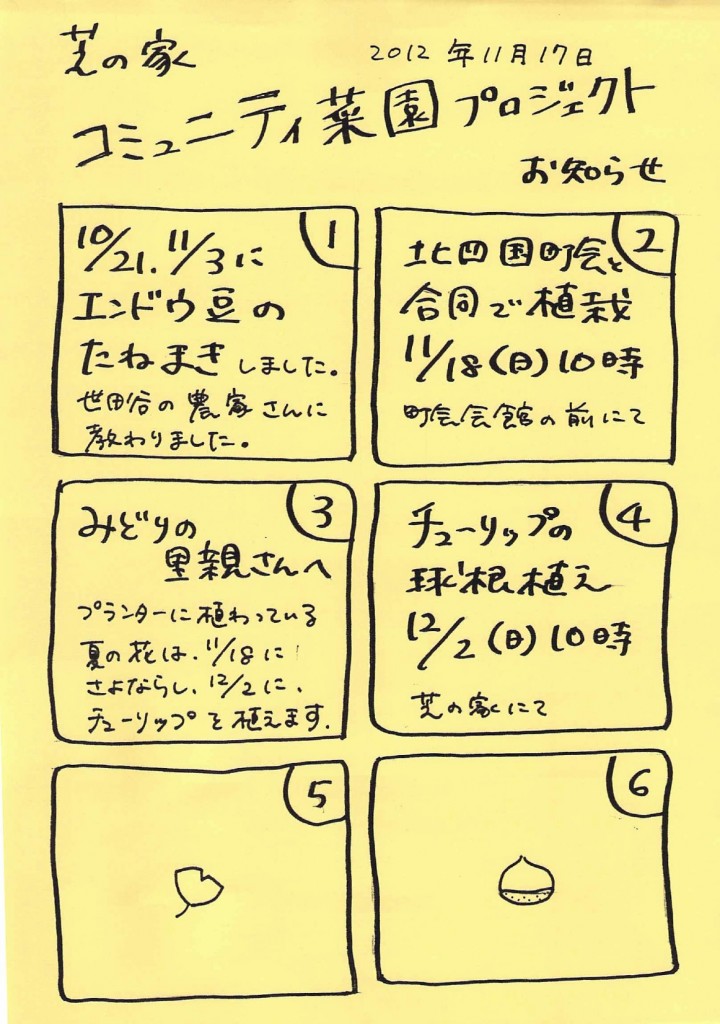 芝の家
2012年11月17日
コミュニティ菜園プロジェクト
お知らせ
1
10/21. 11/3に
エンドウ豆の
たねまきしました。
世田谷の農家さんに
教わりました。
2
北四国町会と
合同で植栽
11/18(日)10時
町会会館の前にて
3
みどりの
里親さんへ
プランターに植わっている
夏の花は、11/18に
さよならし、12/2に、
チューリップを植えます.
4
チューリップの
球根植え
12/2(日)10時
芝の家にて
5
6